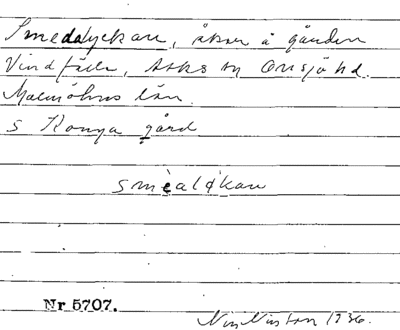 Smedalyckan, åker å gården
Vindfälle, Asks sn Onsjö hd.
Malmöhus län.
S Konga gård
sme̖alǿkan
Nr 5707.
1936.